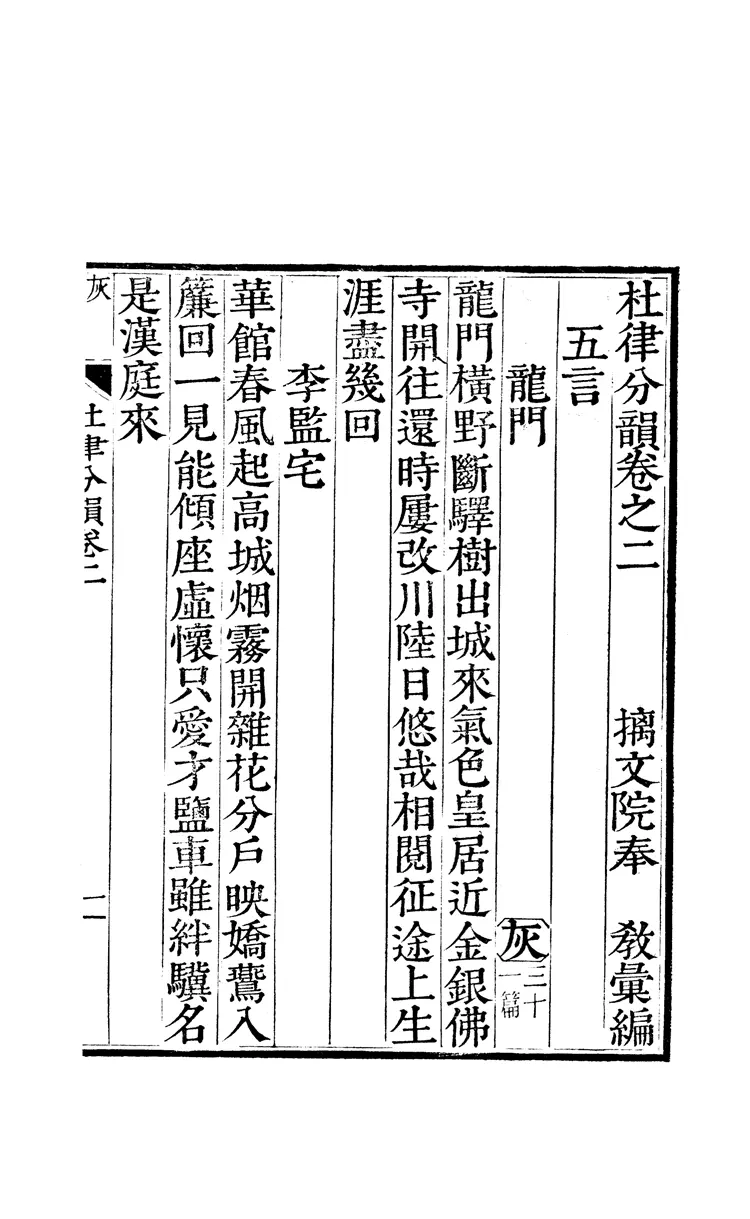 杜律分韻卷之二　摛文院奉　敎彙編
五言
龍門　灰三十一篇
龍門橫野斷驛樹出城來氣色皇居近金銀佛
寺開往還時屢改川陸日悠哉相閱征途上生
涯盡幾回
李監宅
華館春風起高城烟霧開雜花分戶映嬌鷰入
簾回一見能傾座虛懷只愛才鹽車雖絆驥名
是漢庭來
灰　杜律分韻卷二　一